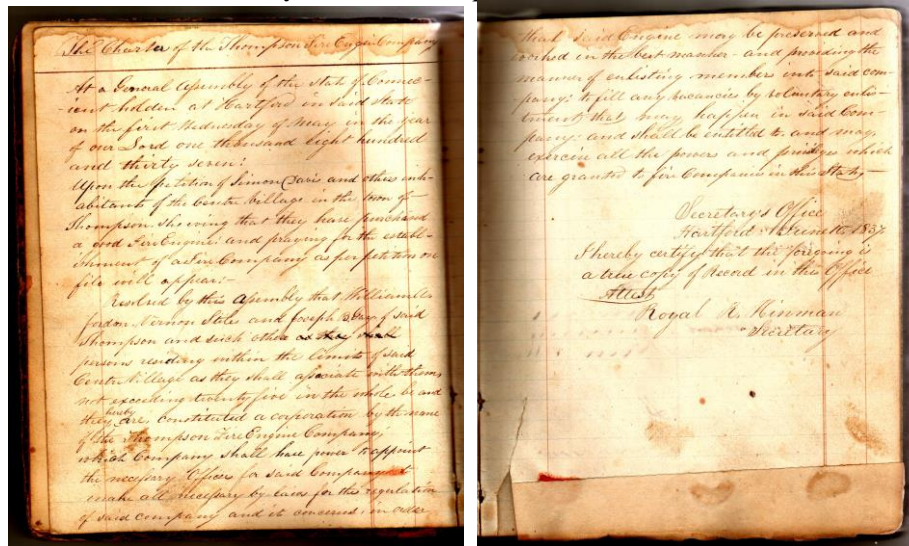 The Charter of the Thompson Fire Engin Company
At a General Assembly of the State of Connec-
-icut holden at Hartford in said State
on the first Wednesday of May in the year
of our Lord one thousand eight hundred
and thirty seven:
Upon the petition of Simon Davis and others inh-
abitants of the Centre Village in the town of
Thompson shewing that they have purchased
a good Fire Engine: and praying for the establ-
ishment of a Fire Company as per petition on
file will appear:-
Resolved by this Assembly that William
Vernon Stiles and Joseph B. Gay of said
Thompson and such other as they shall
persons residing within the limits of said
Centre Village as they shall associate with them,
not exceeding twenty five in the whole be and
hereby
they are, constituted a corporation by the name
of the Thompson Fire Engine Company;
which Company shall have power to appoint
the necessary Officers for said Company &
make all necessary by laws for the regulation
of said company and it concerns: in order
that said Engine may be preserved and
worked in the best manner - and providing the
manner of enlisting members into said com-
pany: to fill any vacancies by voluntary enlis-
tment, that may happen in said Com-
pany: and shall be entitled to and may,
exercise all the powers and privileges which
are granted to fire Companies in this State,-
Secretary's Office
Hartford 1837
I hereby certify that the foregoing is
a true copy of Record in this Office
Attest
Royal R. Hinman
Secretary